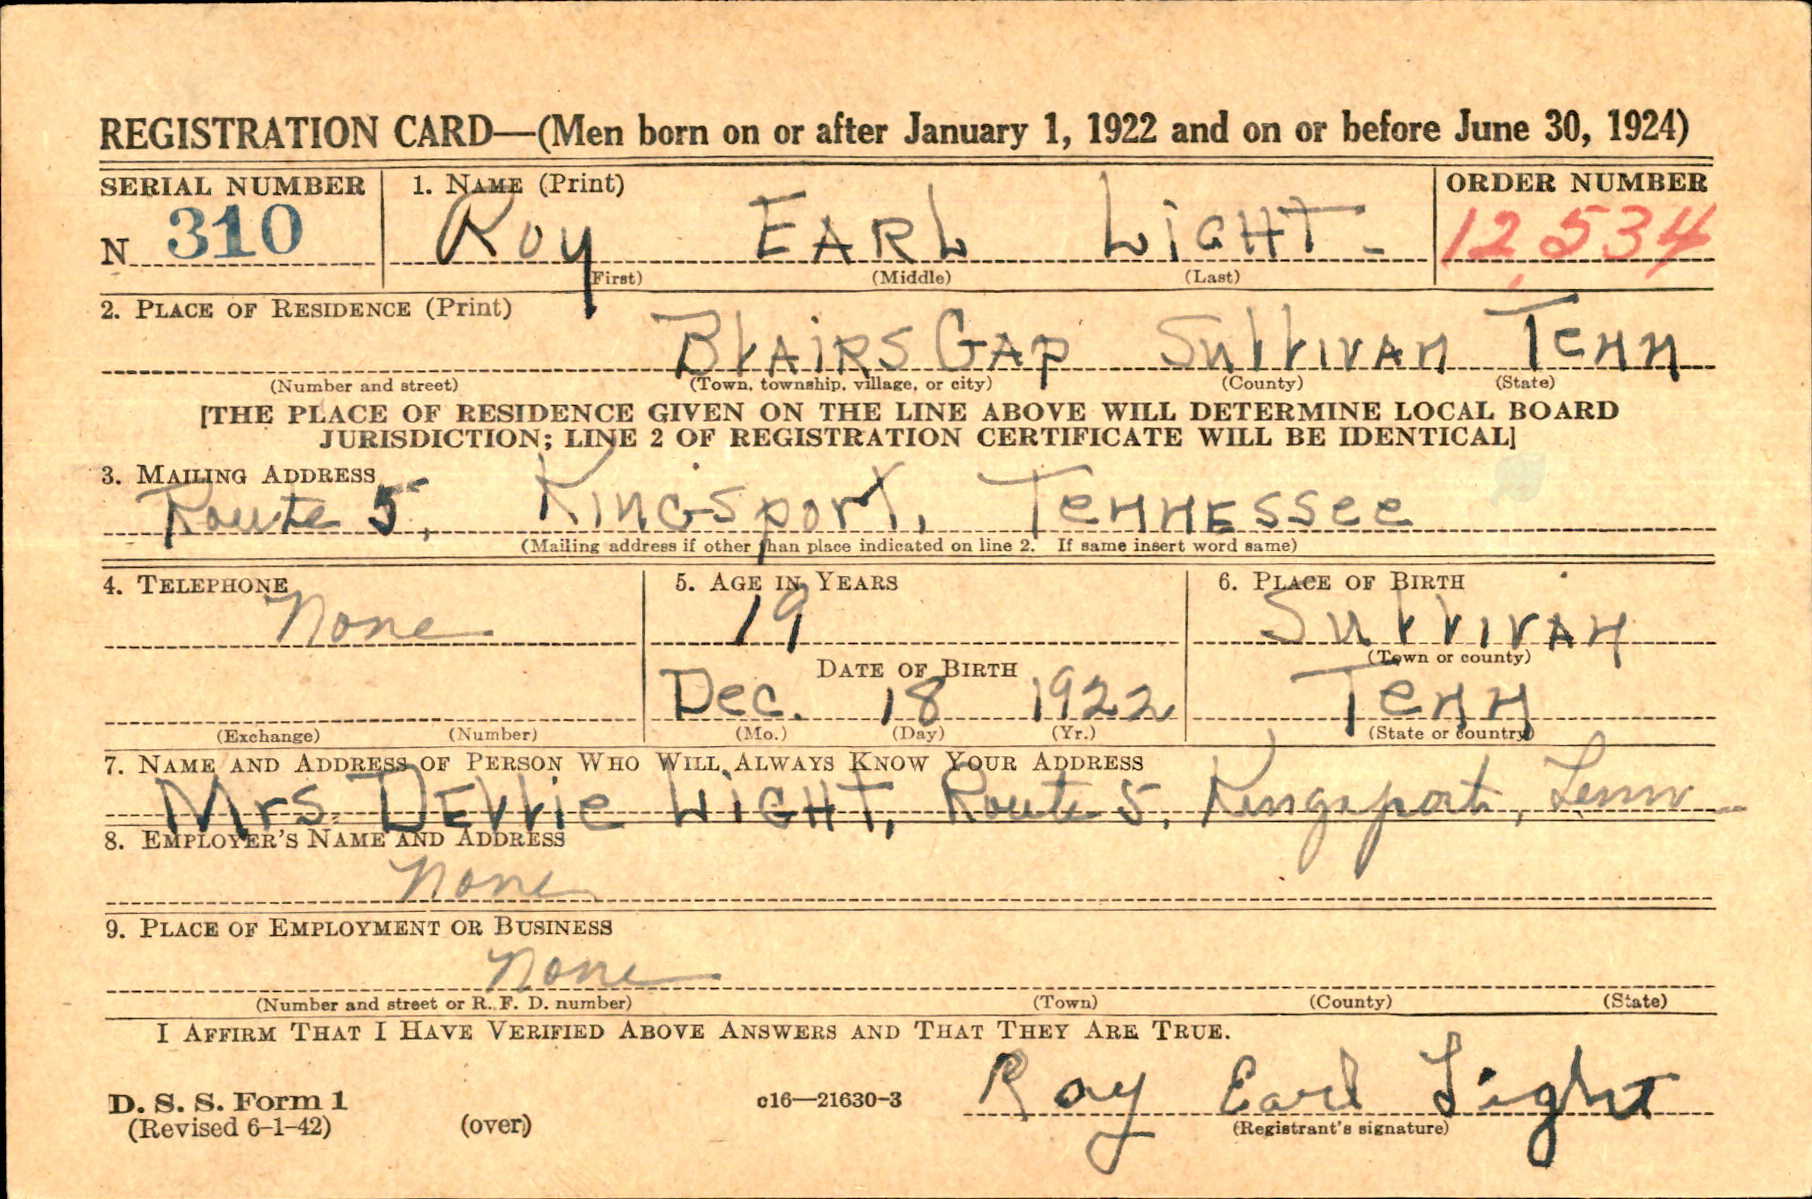 REGISTRATION CARD—(Men born on or after January 1, 1922 and on or before June 30, 1924)
SERIAL NUMBER 1. NAME (Print) ORDER NUMBER
N 310 Roy EARL LiGHT 12,534
(First) (Middle) (Last)
2. PLACE OF RESIDENCE (Print)
BLAiRS GAP SuLLIVAN TeNN
(Number and street) (Town, township, village, or city) (County) (State)
[THE PLACE OF RESIDENCE GIVEN ON THE LINE ABOVE WILL DETERMINE LOCAL BOARD
JURISDICTION; LINE 2 OF REGISTRATION CERTIFICATE WILL BE IDENTICAL]
3. MAILING ADDRESS
Route 5, KiNGSport, TeNNESSee
(Mailing address if other than place indicated on line 2. If same insert word same)
4. TELEPHONE 5. AGE IN YEARS 6. PLACE OF BIRTH
None 19 SuLLIVAN
(Town or county)
DATE OF BIRTH
Dec. 18 1922 TeNN
(Exchange) (Number) (Mo.) (Day) (Yr.) (State or country)
7. NAME AND ADDRESS OF PERSON WHO WILL ALWAYS KNOW YOUR ADDRESS
Mrs. DELLie LiGHT, Route 5, Kingsport, Tenn
8. EMPLOYER'S NAME AND ADDRESS
None
9. PLACE OF EMPLOYMENT OR BUSINESS
None
(Number and street or R. F. D. number) (Town) (County) (State)
I AFFIRM THAT I HAVE VERIFIED ABOVE ANSWERS AND THAT THEY ARE TRUE.
D. S. S. Form 1 c16—21630-3 Roy Earl Light
(Revised 6-1-42) (over) (Registrant's signature)